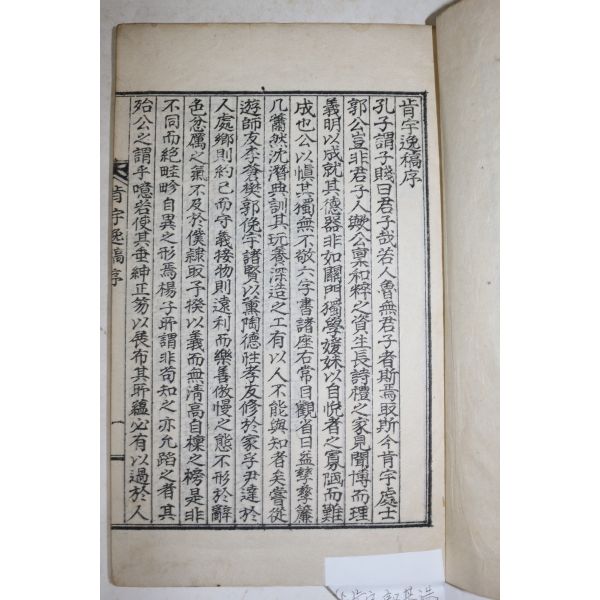 肯宇逸稿序
孔子謂子賤曰君子哉若人魯無君子者斯焉取斯今肯宇處士
郭公豈非君子人歟公稟和粹之資生長詩禮之家見聞博而理
義明以成就其德器非如關門獨學媛妹以自悅者之寡陋而難
成也公以愼其獨無不敬六字書諸座右常目觀省日益孶孶簾
几蕭然沈潛典訓其玩養深造之工有以人不能與知者矣嘗從
遊師友李 樊郭俛宇諸賢以薰陶德性孝友修於家孚尹達於
人處鄕則約己而守義接物則遠利而樂善傲慢之態不形於辭
色忿厲之氣不及於僕隷取予揆以義而無淸高自標之榜是非
不同而絶畦畛自異之形焉楊子所謂非苟知之亦允蹈之者其
殆公之謂乎噫若使其垂紳正笏以展布其所蘊必有以過於人
肯宇逸稿序
一